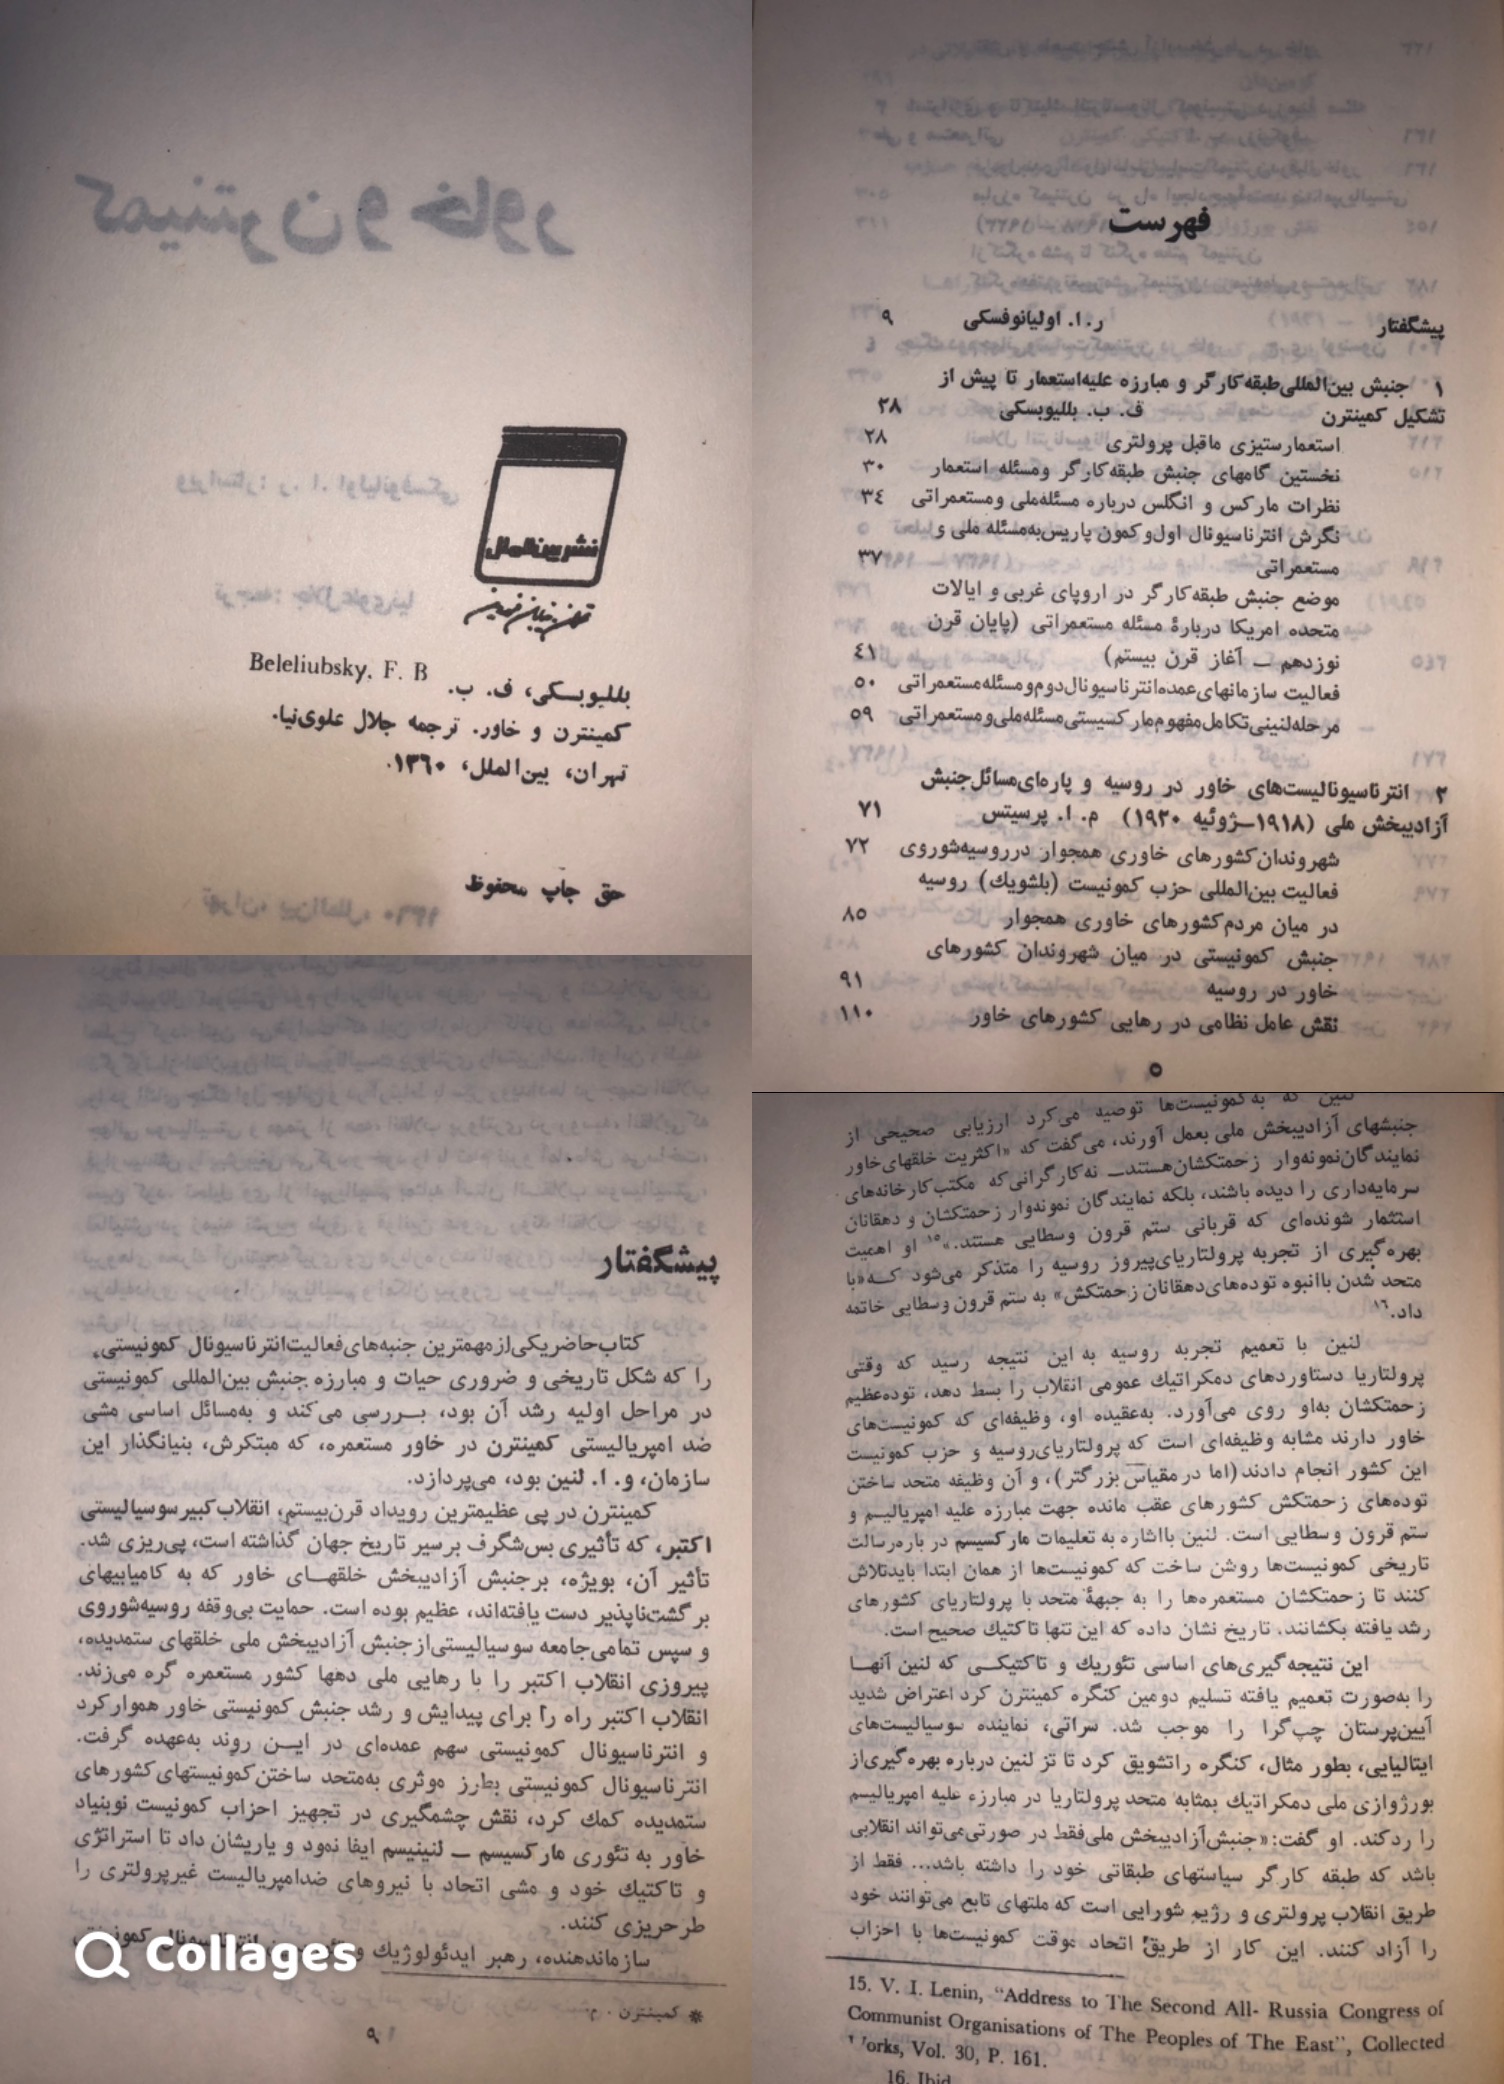 نشر بین‌الملل
تهران خیابان فروردین
Beleliubsky, F. B
بللیوبسکی، ف. ب.
کمینترن و خاور. ترجمه جلال علوی‌نیا.
تهران، بین‌الملل، ۱۳۶۰.
حق چاپ محفوظ
فهرست
پیشگفتار ر. ا. اولیانوفسکی ۹
۱ جنبش بین‌المللی طبقه کارگر و مبارزه علیه استعمار تا پیش از
تشکیل کمینترن ف. ب. بللیوبسکی ۲۸
استعمارستیزی ماقبل پرولتری ۲۸
نخستین گامهای جنبش طبقه کارگر و مسئله استعمار ۳۰
نظرات مارکس و انگلس درباره مسئله ملی و مستعمراتی ۳٤
نگرش انترناسیونال اول و کمون پاریس به مسئله ملی و
مستعمراتی ۳۷
موضع جنبش طبقه کارگر در اروپای غربی و ایالات
متحده امریکا دربارهٔ مسئله مستعمراتی (پایان قرن
نوزدهم ــ آغاز قرن بیستم) ٤۱
فعالیت سازمانهای عمده انترناسیونال دوم و مسئله مستعمراتی ۵۰
مرحله لنینی تکامل مفهوم مارکسیستی مسئله ملی و مستعمراتی ۵۹
۲ انترناسیونالیست‌های خاور در روسیه و پاره‌ای مسائل جنبش
آزادیبخش ملی (۱۹۱۸ــ ژوئیه ۱۹۲۰) م. ا. پرسیتس ۷۱
شهروندان کشورهای خاوری همجوار در روسیه شوروی ۷۲
فعالیت بین‌المللی حزب کمونیست (بلشویك) روسیه
در میان مردم کشورهای خاوری همجوار ۸۵
جنبش کمونیستی در میان شهروندان کشورهای
خاور در روسیه ۹۱
نقش عامل نظامی در رهایی کشورهای خاور ۱۱۰
۵
پیشگفتار
کتاب حاضر یکی از مهمترین جنبه‌های فعالیت انترناسیونال کمونیستی*
را که شکل تاریخی و ضروری حیات و مبارزه جنبش بین‌المللی کمونیستی
در مراحل اولیه رشد آن بود، بــررسی می‌کند و به‌مسائل اساسی مشی
ضد امپریالیستی کمینترن در خاور مستعمره، که مبتکرش، بنیانگذار این
سازمان، و. ا. لنین بود، می‌پردازد.
کمینترن در پی عظیمترین رویداد قرن بیستم، انقلاب کبیر سوسیالیستی
اکتبر، که تأثیری بس شگرف بر سیر تاریخ جهان گذاشته است، پی‌ریزی شد.
تأثیر آن، بویژه، بر جنبش آزادیبخش خلقهــای خاور که به کامیابیهای
برگشت‌ناپذیر دست یافته‌اند، عظیم بوده است. حمایت بی‌وقفه روسیه شوروی
و سپس تمامی جامعه سوسیالیستی از جنبش آزادیبخش ملی خلقهای ستمدیده،
پیروزی انقلاب اکتبر را با رهایی ملی دهها کشور مستعمره گره می‌زند.
انقلاب اکتبر راه را برای پیدایش و رشد جنبش کمونیستی خاور هموار کرد
و انترناسیونال کمونیستی سهم عمده‌ای در ایــن روند به‌عهده گرفت.
انترناسیونال کمونیستی بطرز موثری به‌متحد ساختن کمونیستهای کشورهای
ستمدیده کمك کرد، نقش چشمگیری در تجهیز احزاب کمونیست نوبنیاد
خاور به تئوری مارکسیسم ــ لنینیسم ایفا نمود و یاریشان داد تا استراتژی
و تاکتیك خود و مشی اتحاد با نیروهای ضدامپریالیست غیرپرولتری را
طرح‌ریزی کنند.
سازماندهنده، رهبر ایدئولوژیك و
* کمینترن . م
۹
Collages
لنین که به‌کمونیست‌ها توصیه می‌کرد ارزیابی صحیحی از
جنبشهای آزادیبخش ملی بعمل آورند، می‌گفت که «اکثریت خلقهای خاور
نمایندگان نمونه‌وار زحمتکشان هستند ــ نه کارگرانی که مکتب کارخانه‌های
سرمایه‌داری را دیده باشند، بلکه نمایندگان نمونه‌وار زحمتکشان و دهقانان
استثمار شونده‌ای که قربانی ستم قرون وسطایی هستند.»۱۵ او اهمیت
بهره‌گیری از تجربه پرولتاریای پیروز روسیه را متذکر می‌شود کــه «با
متحد شدن با انبوه توده‌های دهقانان زحمتکش» به ستم قرون وسطایی خاتمه
داد.۱۶
لنین با تعمیم تجربه روسیه به این نتیجه رسید که وقتی
پرولتاریا دستاوردهای دمکراتیك عمومی انقلاب را بسط دهد، توده عظیم
زحمتکشان به‌او روی می‌آورد. به‌عقیده او، وظیفه‌ای که کمونیست‌های
خاور دارند مشابه وظیفه‌ای است که پرولتاریای روسیه و حزب کمونیست
این کشور انجام دادند (اما در مقیاس بزرگتر)، و آن وظیفه متحد ساختن
توده‌های زحمتکش کشورهای عقب مانده جهت مبارزه علیه امپریالیسم و
ستم قرون وسطایی است. لنین با اشاره به تعلیمات مارکسیسم در باره رسالت
تاریخی کمونیست‌ها روشن ساخت که کمونیست‌ها از همان ابتدا باید تلاش
کنند تا زحمتکشان مستعمره‌ها را به جبههٔ متحد با پرولتاریای کشورهای
رشد یافته بکشانند. تاریخ نشان داده که این تنها تاکتیك صحیح است.
این نتیجه‌گیری‌های اساسی تئوریك و تاکتیکــی که لنین آنهــا
را به‌صورت تعمیم یافته تسلیم دومین کنگره کمینترن کرد اعتراض شدید
آیین‌پرستان چپ‌گرا را موجب شد. سراتی، نماینده سوسیالیست‌های
ایتالیایی، بطور مثال، کنگره را تشویق کرد تا تز لنین درباره بهره‌گیری از
بورژوازی ملی دمکراتیك بمثابه متحد پرولتاریا در مبارزء علیه امپریالیسم
را رد کند. او گفت: «جنبش آزادیبخش ملی فقط در صورتی می‌تواند انقلابی
باشد که طبقه کارگر سیاستهای طبقاتی خود را داشته باشد... فقط از
طریق انقلاب پرولتری و رژیم شورایی است که ملتهای تابع می‌توانند خود
را آزاد کنند. این کار از طریق اتحاد موقت کمونیست‌ها با احزاب
15. V. I. Lenin, "Address to The Second All- Russia Congress of
Communist Organisations of The Peoples of The East", Collected
Works, Vol. 30, P. 161.
16. Ibid